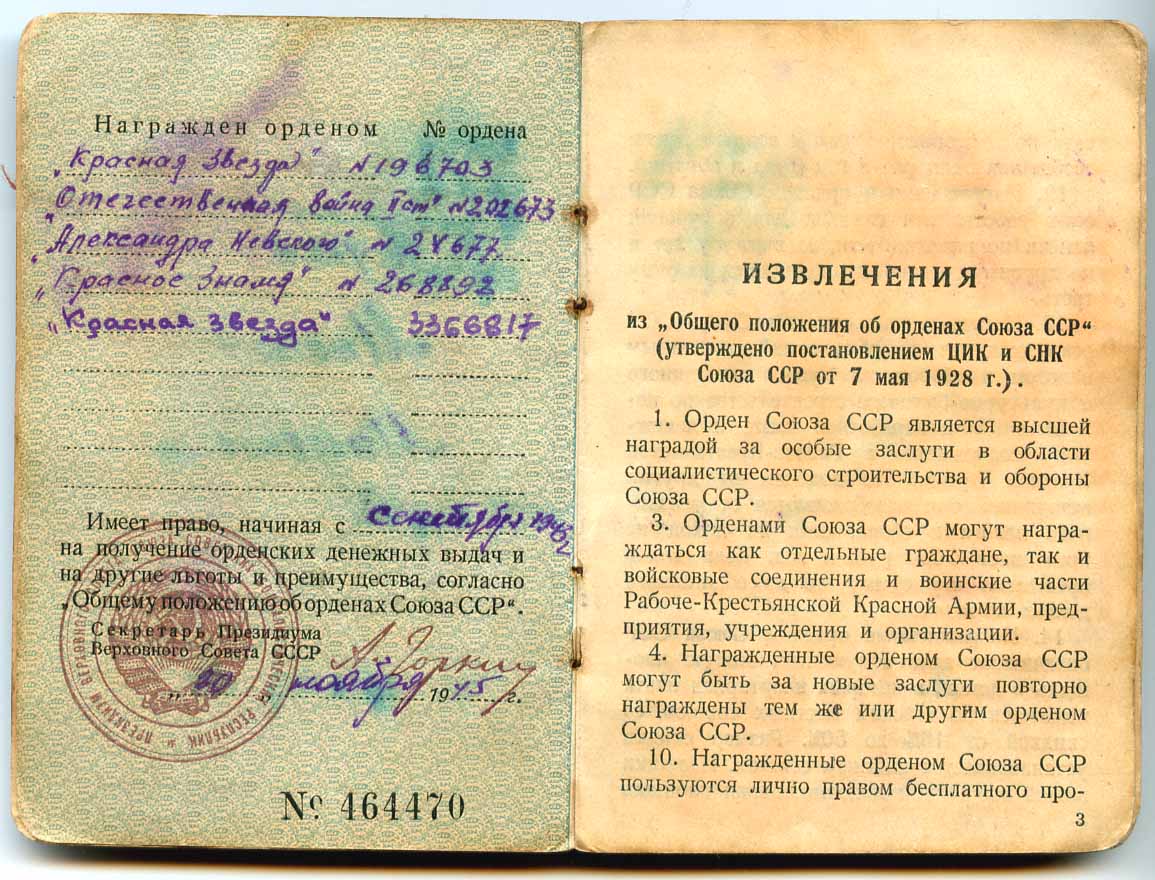 Награжден орденом № ордена
„Красная Звезда" N 196703
„Отечественная война II ст" N 202673
„Александра Невского" N 24677
„Красное Знамя" N 268892
„Красная звезда" 3366817
Имеет право, начиная с
на получение орденских денежных выдач и
на другие льготы и преимущества, согласно
„Общему положению об орденах Союза ССР“.
Секретарь Президиума
Верховного Совета СССР
А. Горкин
„20" ноября 1945 г.
№ 464470
ИЗВЛЕЧЕНИЯ
из „Общего положения об орденах Союза ССР“
(утверждено постановлением ЦИК и СНК
Союза ССР от 7 мая 1928 г.).
1. Орден Союза ССР является высшей
наградой за особые заслуги в области
социалистического строительства и обороны
Союза ССР.
3. Орденами Союза ССР могут награ-
ждаться как отдельные граждане, так и
войсковые соединения и воинские части
Рабоче-Крестьянской Красной Армии, пред-
приятия, учреждения и организации.
4. Награжденные орденом Союза ССР
могут быть за новые заслуги повторно
награждены тем же или другим орденом
Союза ССР.
10. Награжденные орденом Союза ССР
пользуются лично правом бесплатного про-
3